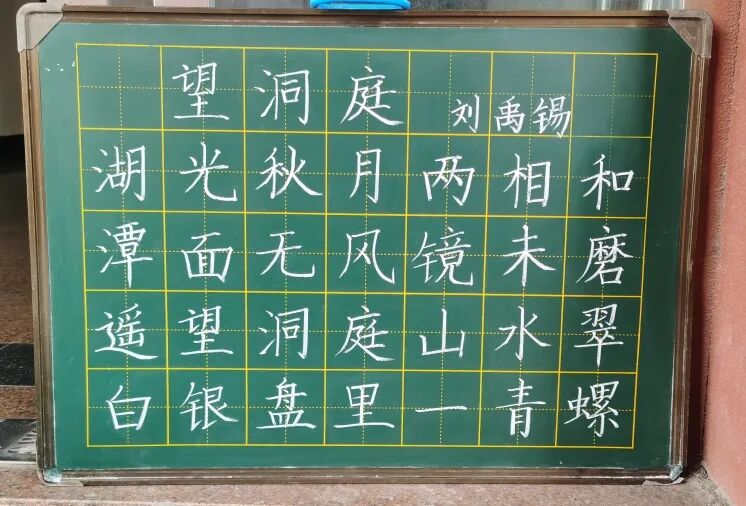 望洞庭 刘禹锡
湖光秋月两相和
潭面无风镜未磨
遥望洞庭山水翠
白银盘里一青螺